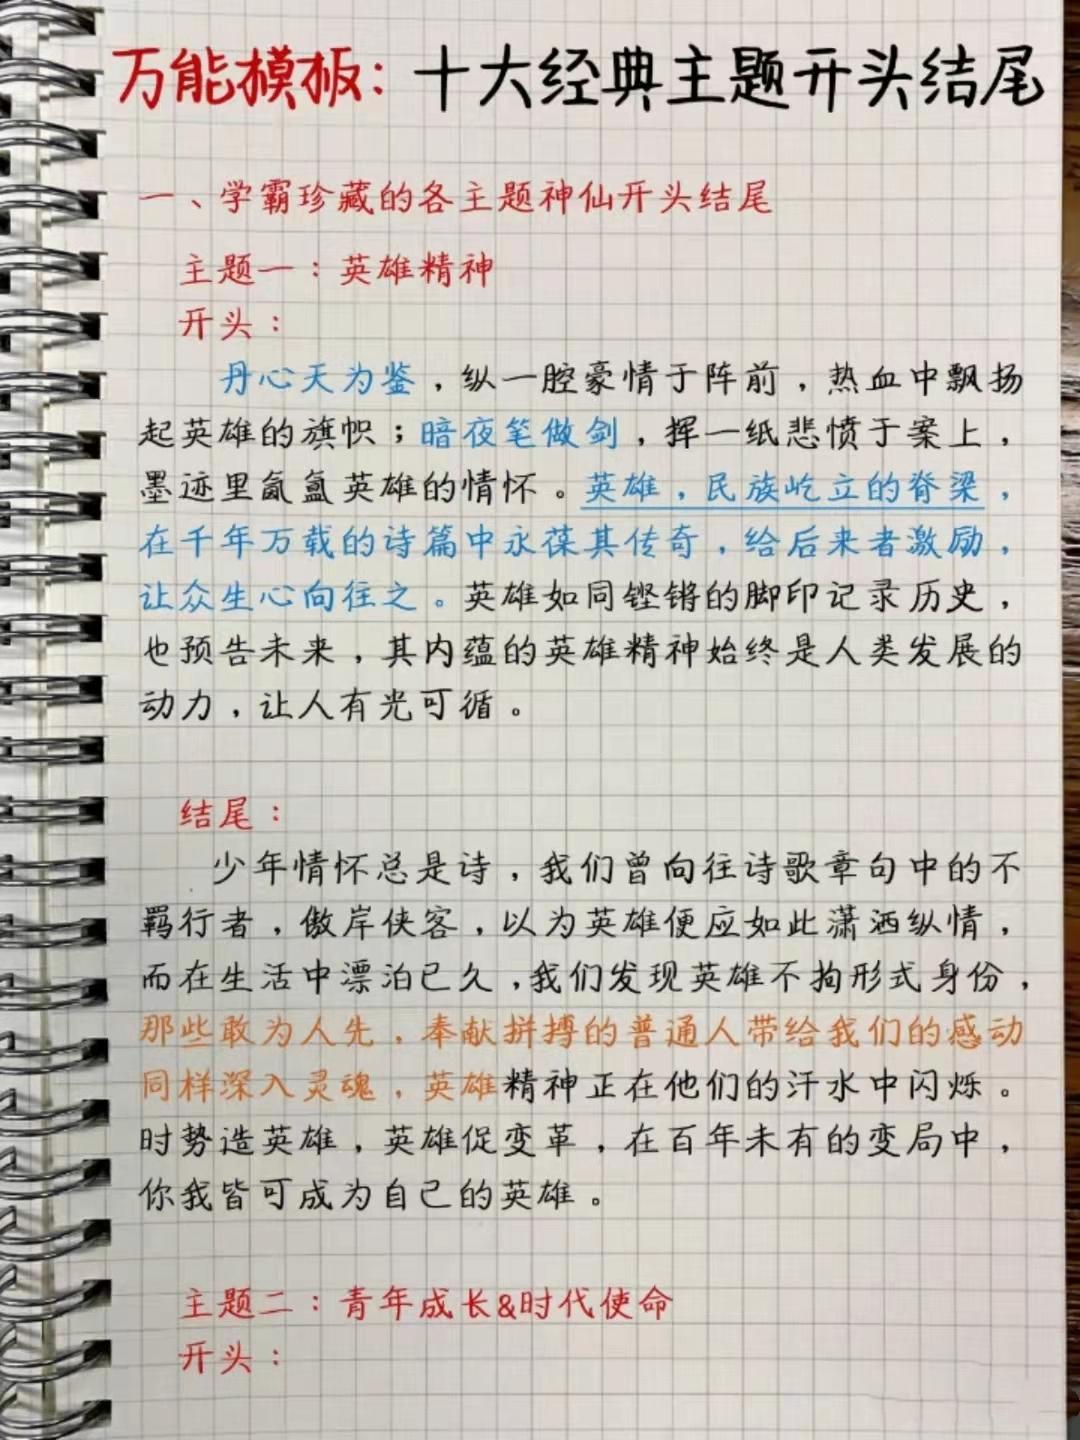 万能模板：十大经典主题开头结尾
一、学霸珍藏的各主题神仙开头结尾
主题一：英雄精神
开头：
丹心天为鉴，纵一腔豪情于阵前，热血中飘扬
起英雄的旗帜；暗夜笔做剑，挥一纸悲愤于案上，
墨迹里氤氲英雄的情怀。英雄，民族屹立的脊梁，
在千年万载的诗篇中永葆其传奇，给后来者激励，
让众生心向往之。英雄如同铿锵的脚印记录历史，
也预告未来，其内蕴的英雄精神始终是人类发展的
动力，让人有光可循。
结尾：
少年情怀总是诗，我们曾向往诗歌章句中的不
羁行者，傲岸侠客，以为英雄便应如此潇洒纵情，
而在生活中漂泊已久，我们发现英雄不拘形式身份，
那些敢为人先，奉献拼搏的普通人带给我们的感动
同样深入灵魂，英雄精神正在他们的汗水中闪烁。
时势造英雄，英雄促变革，在百年未有的变局中，
你我皆可成为自己的英雄。
主题二：青年成长&时代使命
开头：